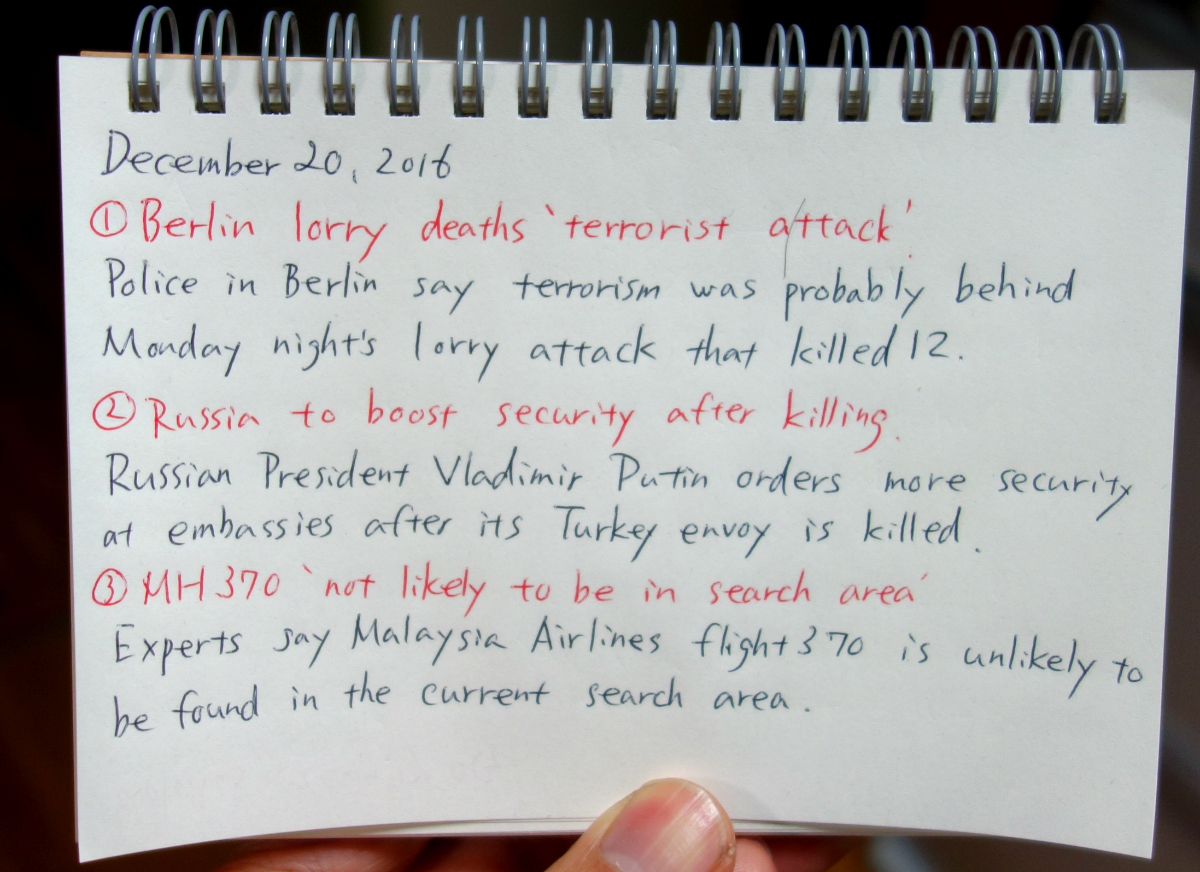 December 20, 2016
① Berlin lorry deaths ‘terrorist attack’
Police in Berlin say terrorism was probably behind
Monday night's lorry attack that killed 12.
② Russia to boost security after killing.
Russian President Vladimir Putin orders more security
at embassies after its Turkey envoy is killed.
③ MH370 ‘not likely to be in search area’
Experts say Malaysia Airlines flight 370 is unlikely to
be found in the current search area.